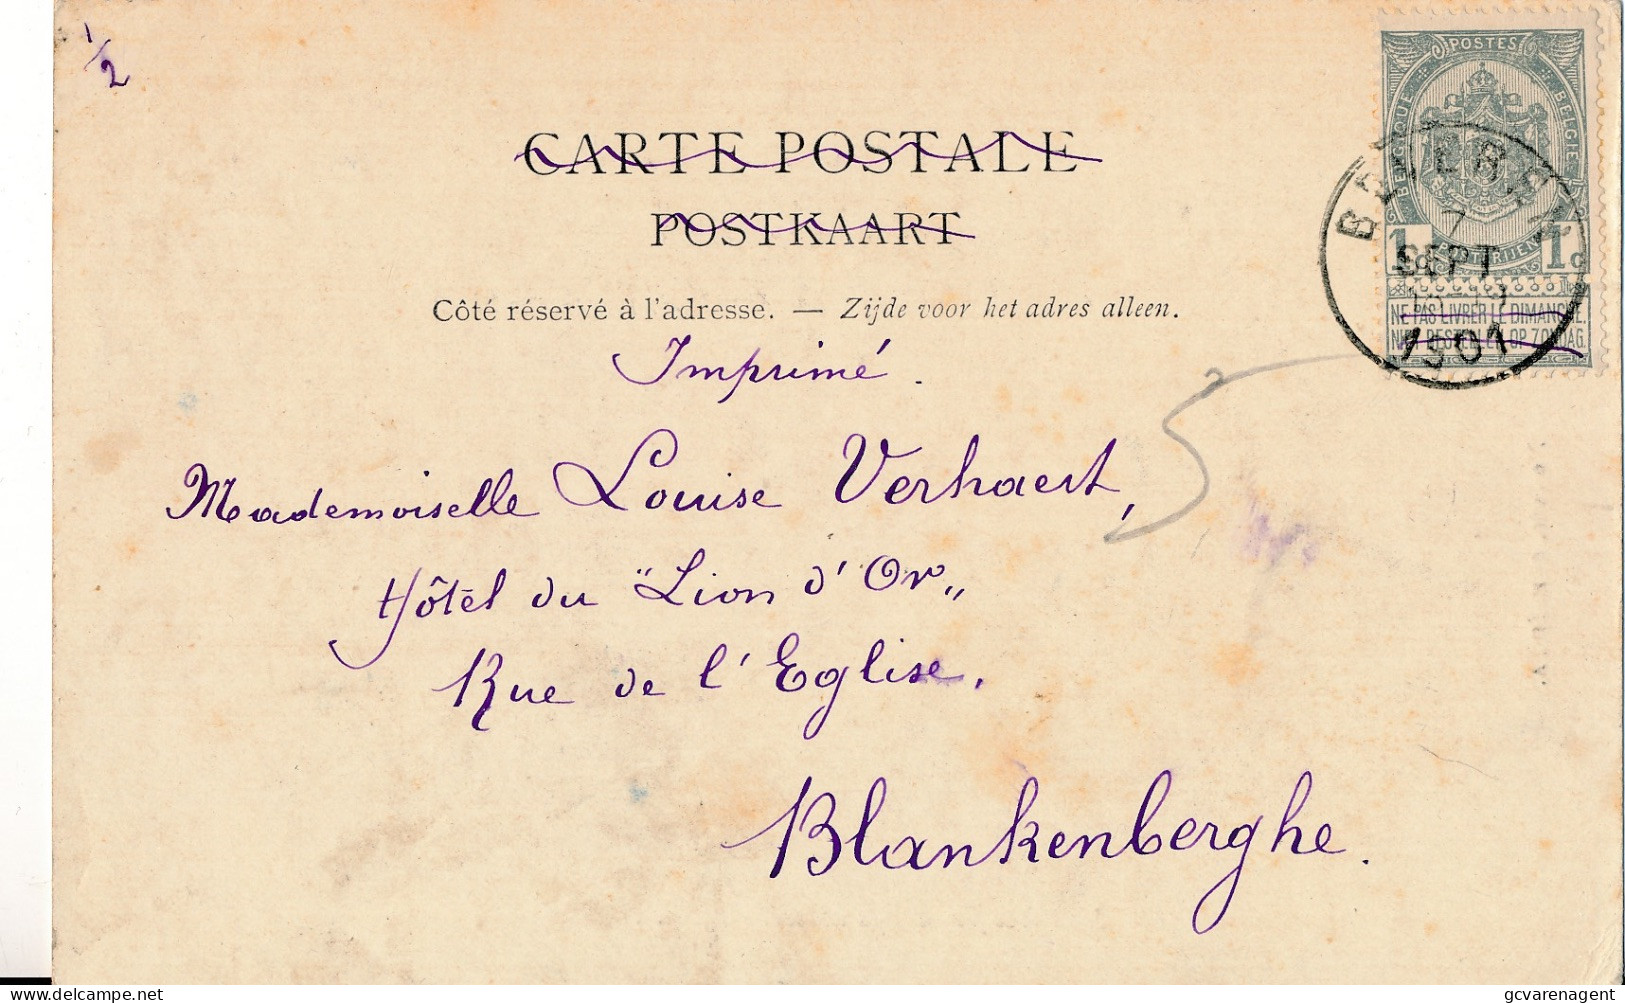 1/2
CARTE POSTALE
POSTKAART
Côté réservé à l'adresse. — Zijde voor het adres alleen.
Imprimé.
Mademoiselle Louise Verhaert,
Hôtel du "Lion d'Or„
Rue de l'Eglise.
Blankenberghe.
POSTES
BELGIQUE BELGIE
POSTERIJEN
1 1c
NE PAS LIVRER LE DIMANCHE.
NIET BESTELLEN OP ZONDAG.
7
SEPT
1901
gcvarenagent